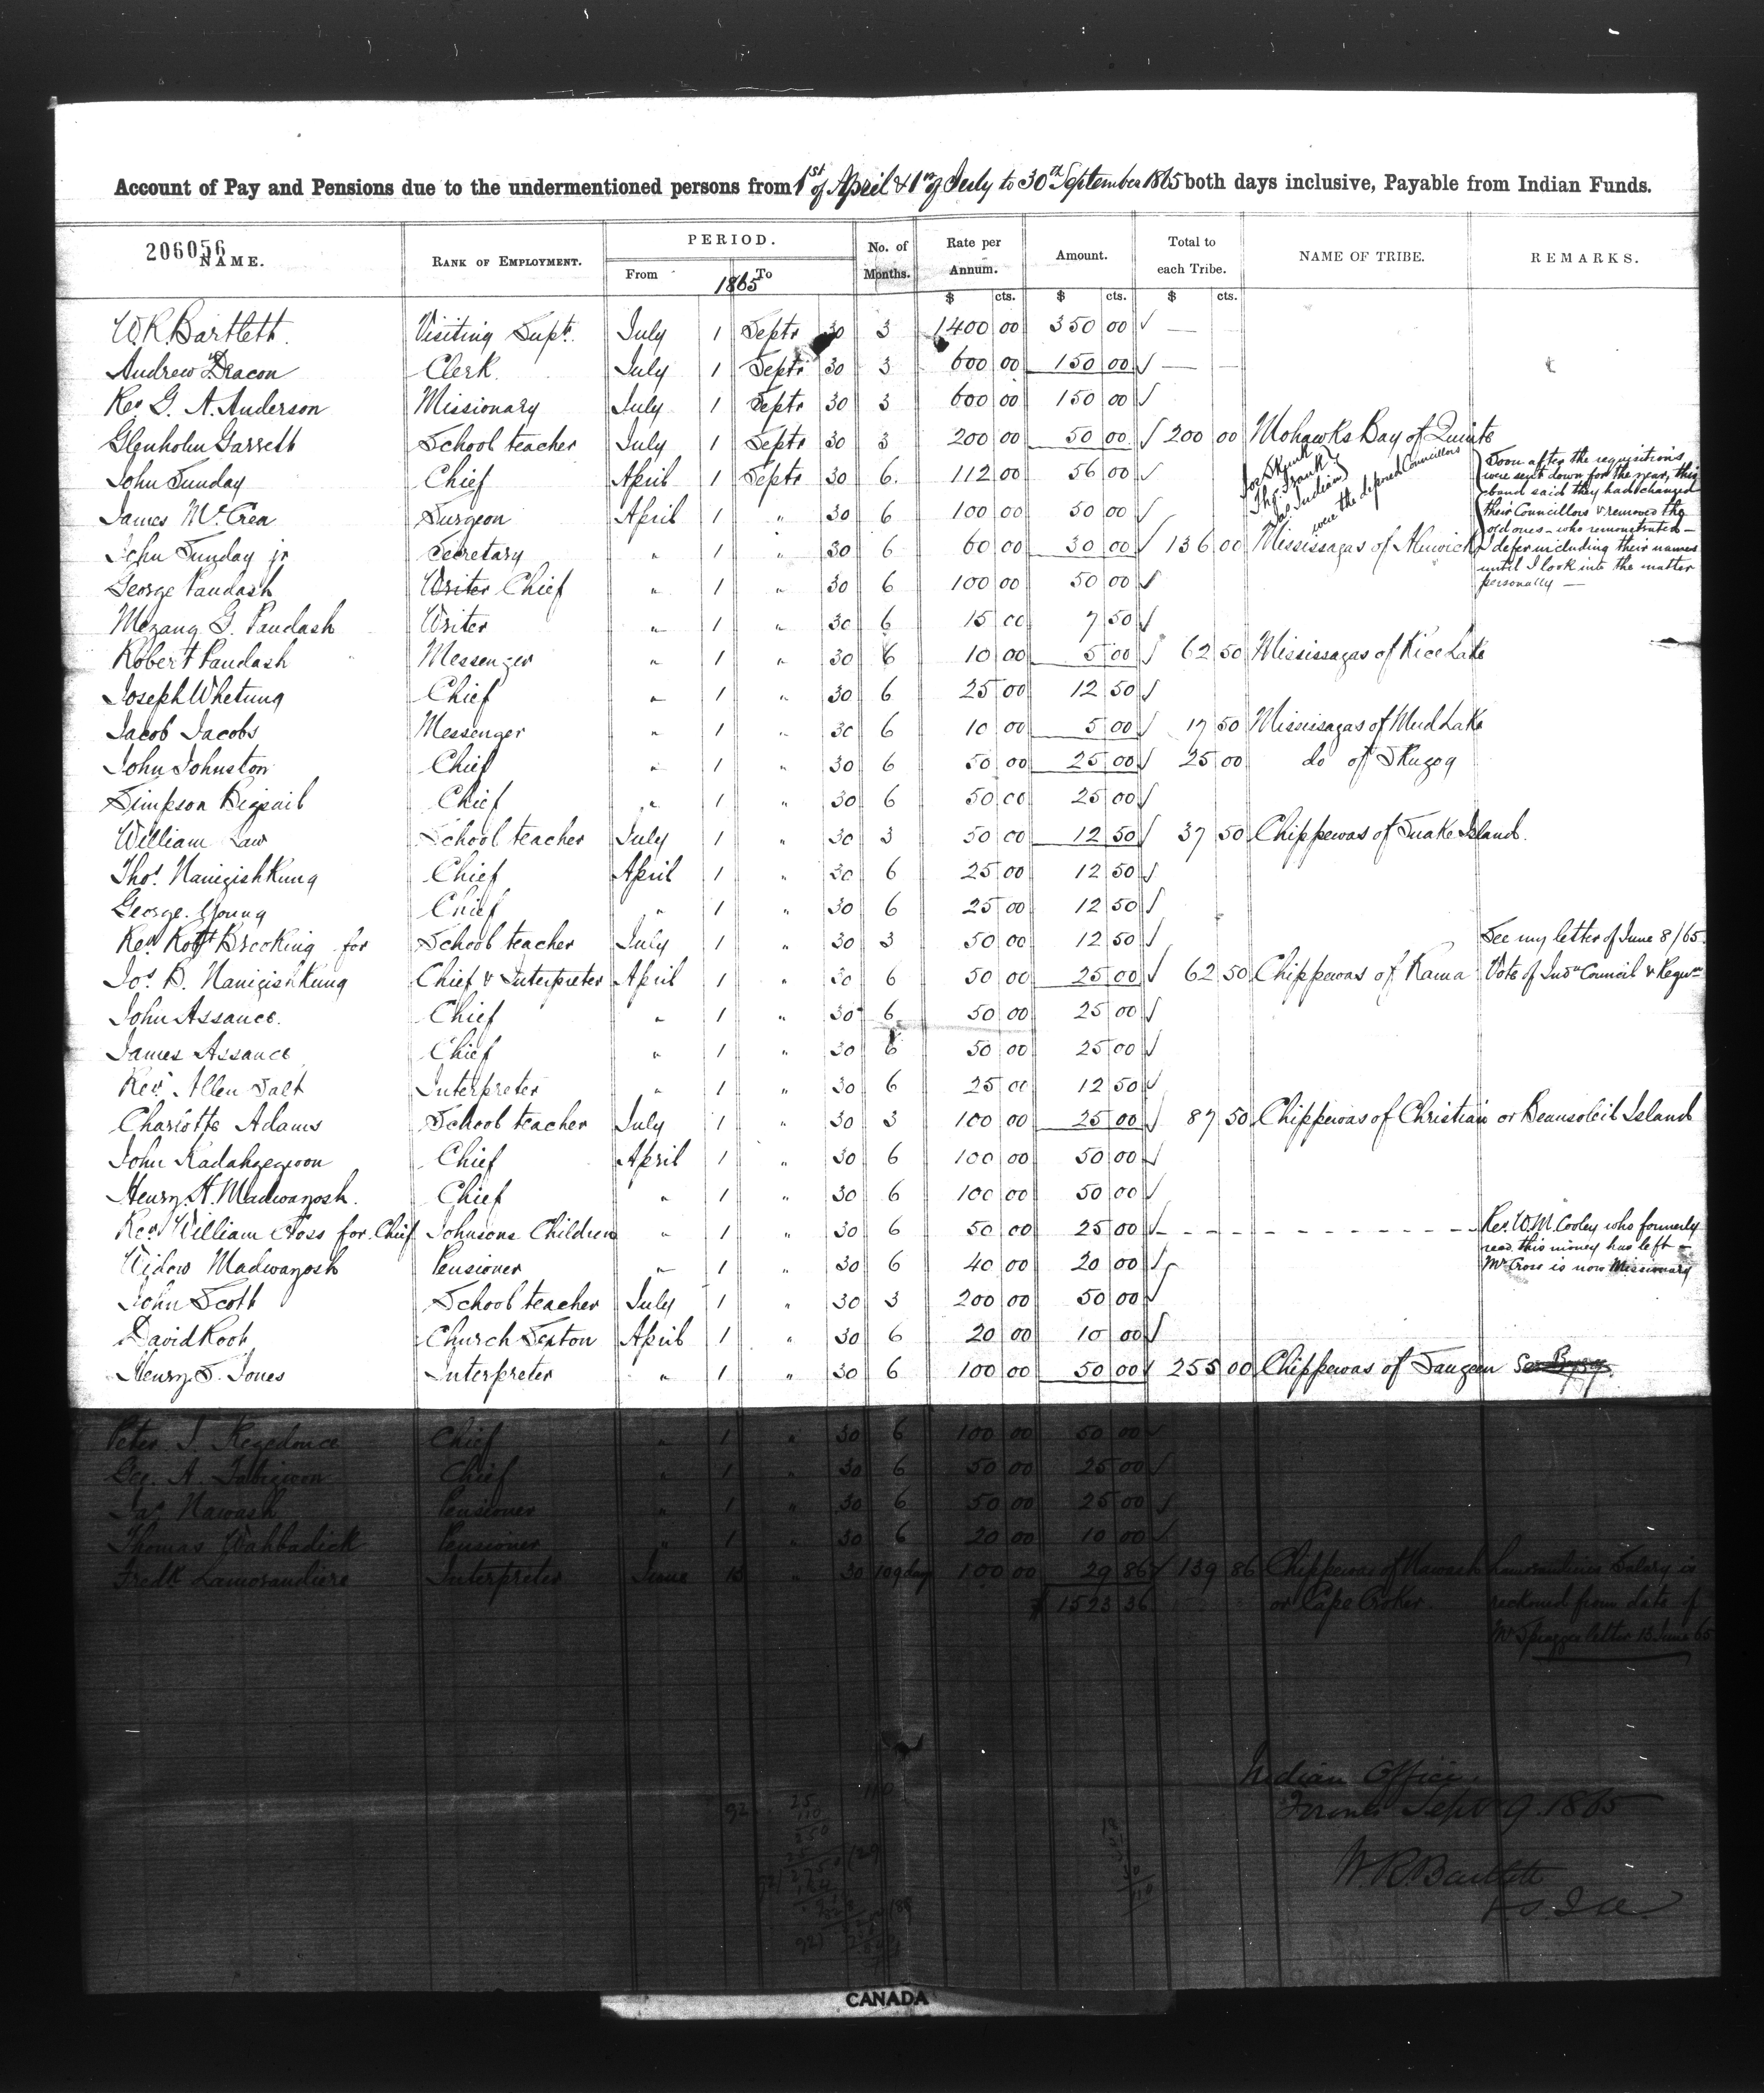 Account of Pay and Pensions due to the undermentioned persons from 1st of April & 1st of July to 30th September 1865 both days inclusive, Payable from Indian Funds.
206056
NAME. RANK OF EMPLOYMENT. PERIOD. From 1865 To No. of Months. Rate per Annum. Amount. Total to each Tribe. NAME OF TRIBE. REMARKS.
$ cts. $ cts. $ cts.
W.R. Bartlett. Visiting Supt. July 1 Septr 30 3 1400 00 350 00 ✓ — —
Andrew Deacon Clerk. July 1 Septr 30 3 600 00 150 00 ✓ — —
Rev G. A. Anderson Missionary July 1 Septr 30 3 600 00 150 00 ✓
Glenholm Garrett School teacher July 1 Septr 30 3 200 00 50 00 ✓ 200 00 Mohawks Bay of Quinte
John Sunday Chief April 1 Septr 30 6. 112 00 56 00 ✓
Joe Skunk
Tho. Frank
Jas. Indian
were the deposed Councillors
Soon after the requisitions
were sent down for the year, this
band said they had changed
their Councillors & removed the
old ones – who remonstrated –
I defer including their names
until I look into the matter
personally —
James McCrea Surgeon April 1 " 30 6 100 00 50 00 ✓
John Sunday jr Secretary " 1 " 30 6 60 00 30 00 ✓ 136 00 Mississagas of Alnwick
George Paudash Writer Chief " 1 " 30 6 100 00 50 00 ✓
Mezang G. Paudash Writer " 1 " 30 6 15 00 7 50 ✓
Robert Paudash Messenger " 1 " 30 6 10 00 5 00 ✓ 62 50 Mississagas of Rice Lake
Joseph Whetung Chief " 1 " 30 6 25 00 12 50 ✓
Jacob Jacobs Messenger " 1 " 30 6 10 00 5 00 ✓ 17 50 Mississagas of Mud Lake
John Johnston Chief " 1 " 30 6 50 00 25 00 ✓ 25 00 do of Skugog
Simpson Bigsail Chief " 1 " 30 6 50 00 25 00 ✓
William Law School teacher July 1 " 30 3 50 00 12 50 ✓ 37 50 Chippewas of Snake Island.
Thos. Nanigishkung Chief April 1 " 30 6 25 00 12 50 ✓
George Young Chief " 1 " 30 6 25 00 12 50 ✓
Rev Robt Brooking for School teacher July 1 " 30 3 50 00 12 50 ✓ See my letter of June 8/65.
Jos. B. Nanigishkung Chief & Interpreter April 1 " 30 6 50 00 25 00 ✓ 62 50 Chippewas of Rama Vote of Indn Council & Requn
John Assance. Chief " 1 " 30 6 50 00 25 00 ✓
James Assance Chief " 1 " 30 6 50 00 25 00 ✓
Rev. Allen Salt Interpreter " 1 " 30 6 25 00 12 50 ✓
Charlotte Adams School teacher July 1 " 30 3 100 00 25 00 ✓ 87 50 Chippewas of Christian or Beausoleil Island
John Kadahgegwon Chief April 1 " 30 6 100 00 50 00 ✓
Henry H. Madwayosh. Chief " 1 " 30 6 100 00 50 00 ✓
Rev. William Cross for Chief Johnsons Children " 1 " 30 6 50 00 25 00 ✓
Rev. W. M. Cooley who formerly
recd. this money has left –
Mr Cross is now Missionary
Widow Madwayosh Pensioner " 1 " 30 6 40 00 20 00 ✓
John Scott School teacher July 1 " 30 3 200 00 50 00 ✓
David Root Church Sexton April 1 " 30 6 20 00 10 00 ✓
Henry S. Jones Interpreter " 1 " 30 6 100 00 50 00 ✓ 255 00 Chippewas of Saugeen
Peter J. Kegedonce Chief " 1 " 30 6 100 00 50 00 ✓
Geo. A. Tabegwon Chief " 1 " 30 6 50 00 25 00 ✓
Jas Nawash Pensioner " 1 " 30 6 50 00 25 00 ✓
Thomas Wahbadick Pensioner " 1 " 30 6 20 00 10 00 ✓
Fredk Lamorandiere Interpreter June 13 " 30 109 day 100 00 29 86 ✓ 139 86 Chippewas of Nawash Lamorandiers Salary is
$ 1523 36 or Cape Croker. reckoned from date of
Mr Spragges letter 13 June 65
110
92
Indian Office.
Toronto Sept 9. 1865
W. R. Bartlett
V.S.I.A.
CANADA